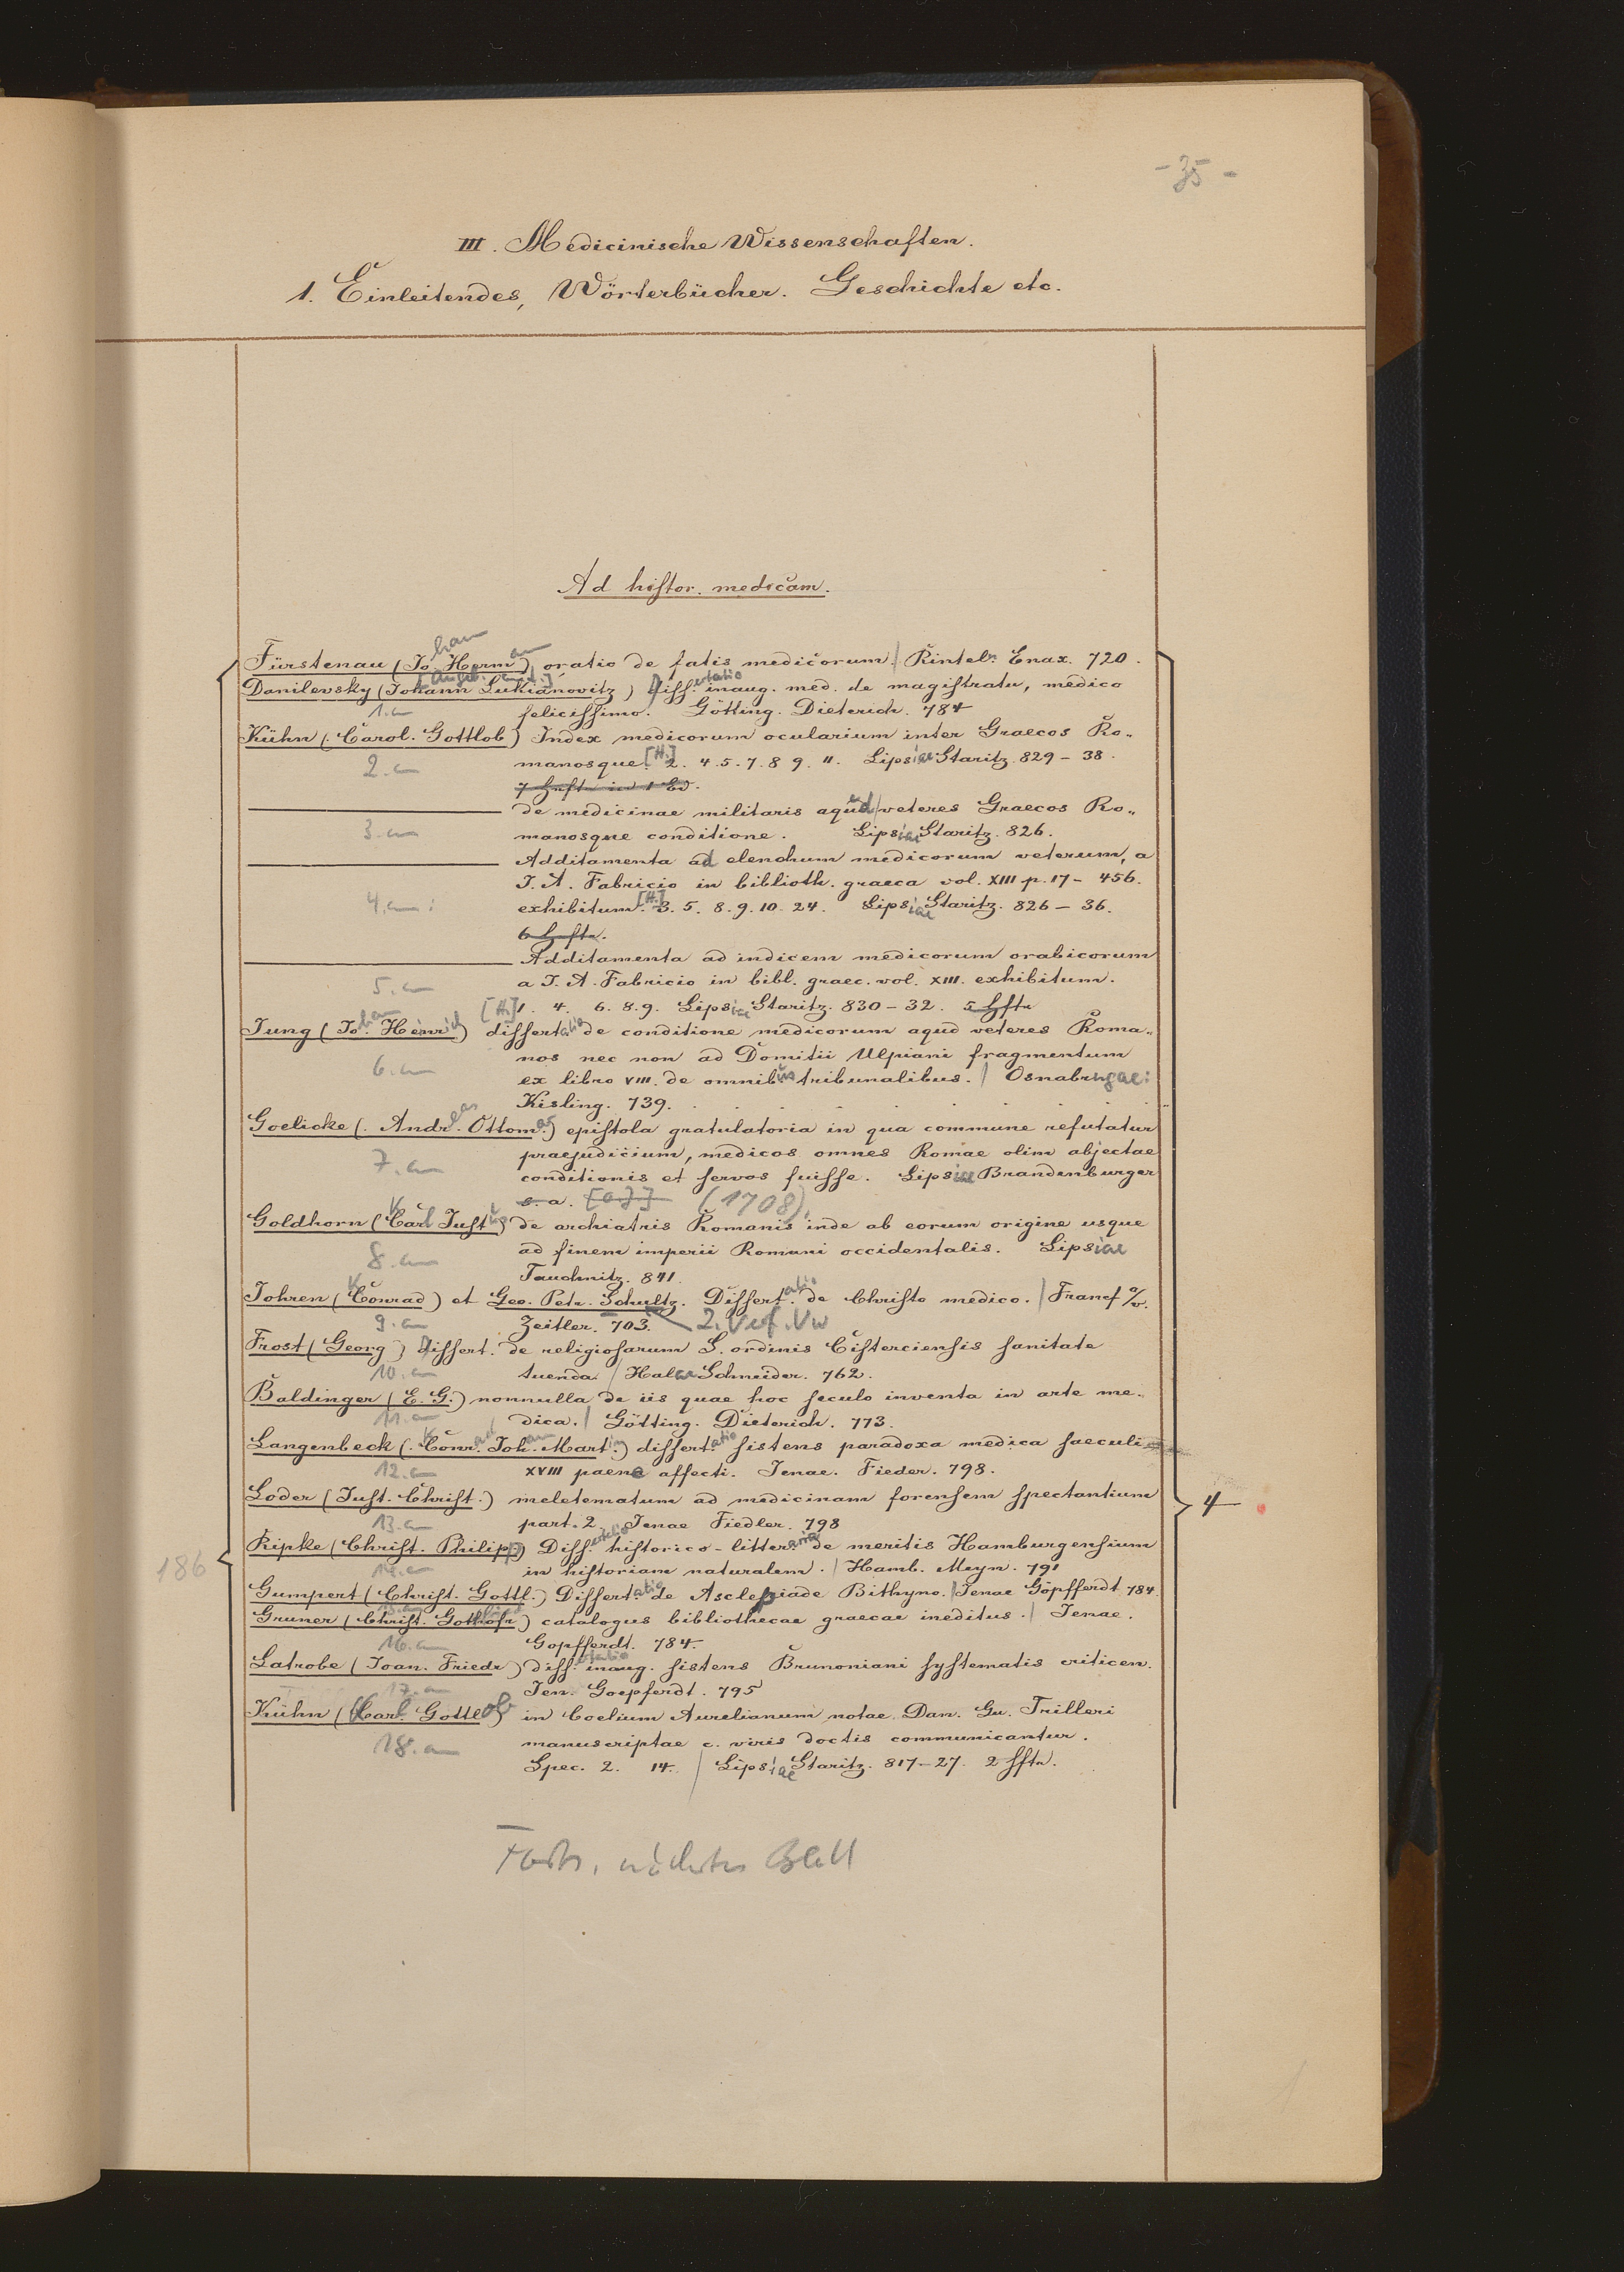 - 35 -
III. Medicinische Wissenschaften.
1. Einleitendes, Wörterbücher. Geschichte etc.
Ad histor. medicam.
Fürstenau (Johann Herman) oratio de fatis medicorum. / Rinteln Enax. 720.
Danilevsky (Johann Lukianovitz) Dissertatio inaug. med. de magistratu, medico
1. an felicissimo. Götting. Dieterich. 784
Kühn (Carol. Gottlob) Index medicorum oculariorum inter Graecos Ro-
2. an manosque [H.] 2. 4. 5. 7. 8 9. 11. Lipsiae Staritz. 829-38.
7 Hefte in 1 Bd.
de medicinae militaris apud / veteres Graecos Ro-
3. an manosque conditione. Lipsiae Staritz. 826.
Additamenta ad elenchum medicorum veterum, a
J. A. Fabricio in biblioth. graeca vol. XIII p. 17-456.
4. an exhibitum. [H.] 3. 5. 8. 9. 10. 24. Lipsiae Staritz. 826-36.
6 Hefte.
Additamenta ad indicem medicorum arabicorum
5. an a J. A. Fabricio in bibl. graec. vol. XIII. exhibitum.
[H.] 1. 4. 6. 8. 9. Lipsiae Staritz. 830-32. 5 Hfte
Jung (Johan Heinrich) dissertatio de conditione medicorum apud veteres Roma-
nos nec non ad Domitii Ulpiani fragmentum
6. an ex libro VIII. de omnibus tribunalibus. / Osnabrugae:
Kisling. 739.
Goelicke (Andreas Ottomar) epistola gratulatoria in qua commune refutatur
7. an praejudicium, medicos omnes Romae olim abjectae
conditionis et servos fuisse. Lipsiae Brandenburger
s. a. [o. J.] (1708).
Goldhorn (Karl Justus) de archiatris Romanis inde ab eorum origine usque
8. an ad finem imperii Romani occidentalis. Lipsiae
Tauchnitz. 841.
Johren (Konrad) et Geo. Petr. Schultz. Dissertatio de Christo medico. / Francf a/v.
9. an Zeitler. 703. 2. Verf. Vw
Frost (Georg) Dissert. de religiosarum S. ordinis Cisterciensis sanitate
10. an tuenda / Halae Schneider. 762.
Baldinger (E. G.) nonnulla de iis quae hoc seculo inventa in arte me-
11. an dica. / Götting. Dieterich. 773.
Langenbeck (Konrad Johan Martin) dissertatio sistens paradoxa medica saeculi
12. an XVIII paene affecti. Jenae. Fieder. 798.
Loder (Just. Christ.) meletematum ad medicinam forensem spectantium
13. an part. 2. Jenae Fiedler. 798
Ripke (Christ. Philipp) Dissertatio historico-litteraria de meritis Hamburgensium
14. an in historiam naturalem. / Hamb. Meyn. 791
Gumpert (Christ. Gottl.) Dissertatio de Asclepiade Bithyno. / Jenae Göpfferdt 784.
15. an
Gruner (Christ. Gothofr.) catalogus bibliothecae graecae ineditus. / Jenae.
16. an Gopfferdt. 784.
Latrobe (Joan. Friedr) dissertatio inaug. sistens Brunoniani systematis criticen.
17. an Jen. Goepferdt. 795
Kühn (Karl Gottlob) in Coelium Aurelianum notae Dan. Gu. Trilleri
18. an manuscriptae c. viris doctis communicantur.
Spec. 2. 14. / Lipsiae Staritz. 817-27. 2 Hfte.
186
4
Forts. nächstes Blatt